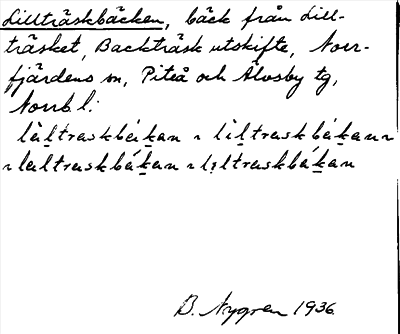 Lillträskbäcken, bäck från Lill-
träsket, Backträsk utskifte, Norr-
fjärdens sn, Piteå och Älvsby tg,
Norrb l:
lìltraskbákan ~ lìltraskbákan ~
~ laltraskbákan ~ lìltraskbákan
B. Nygren 1936